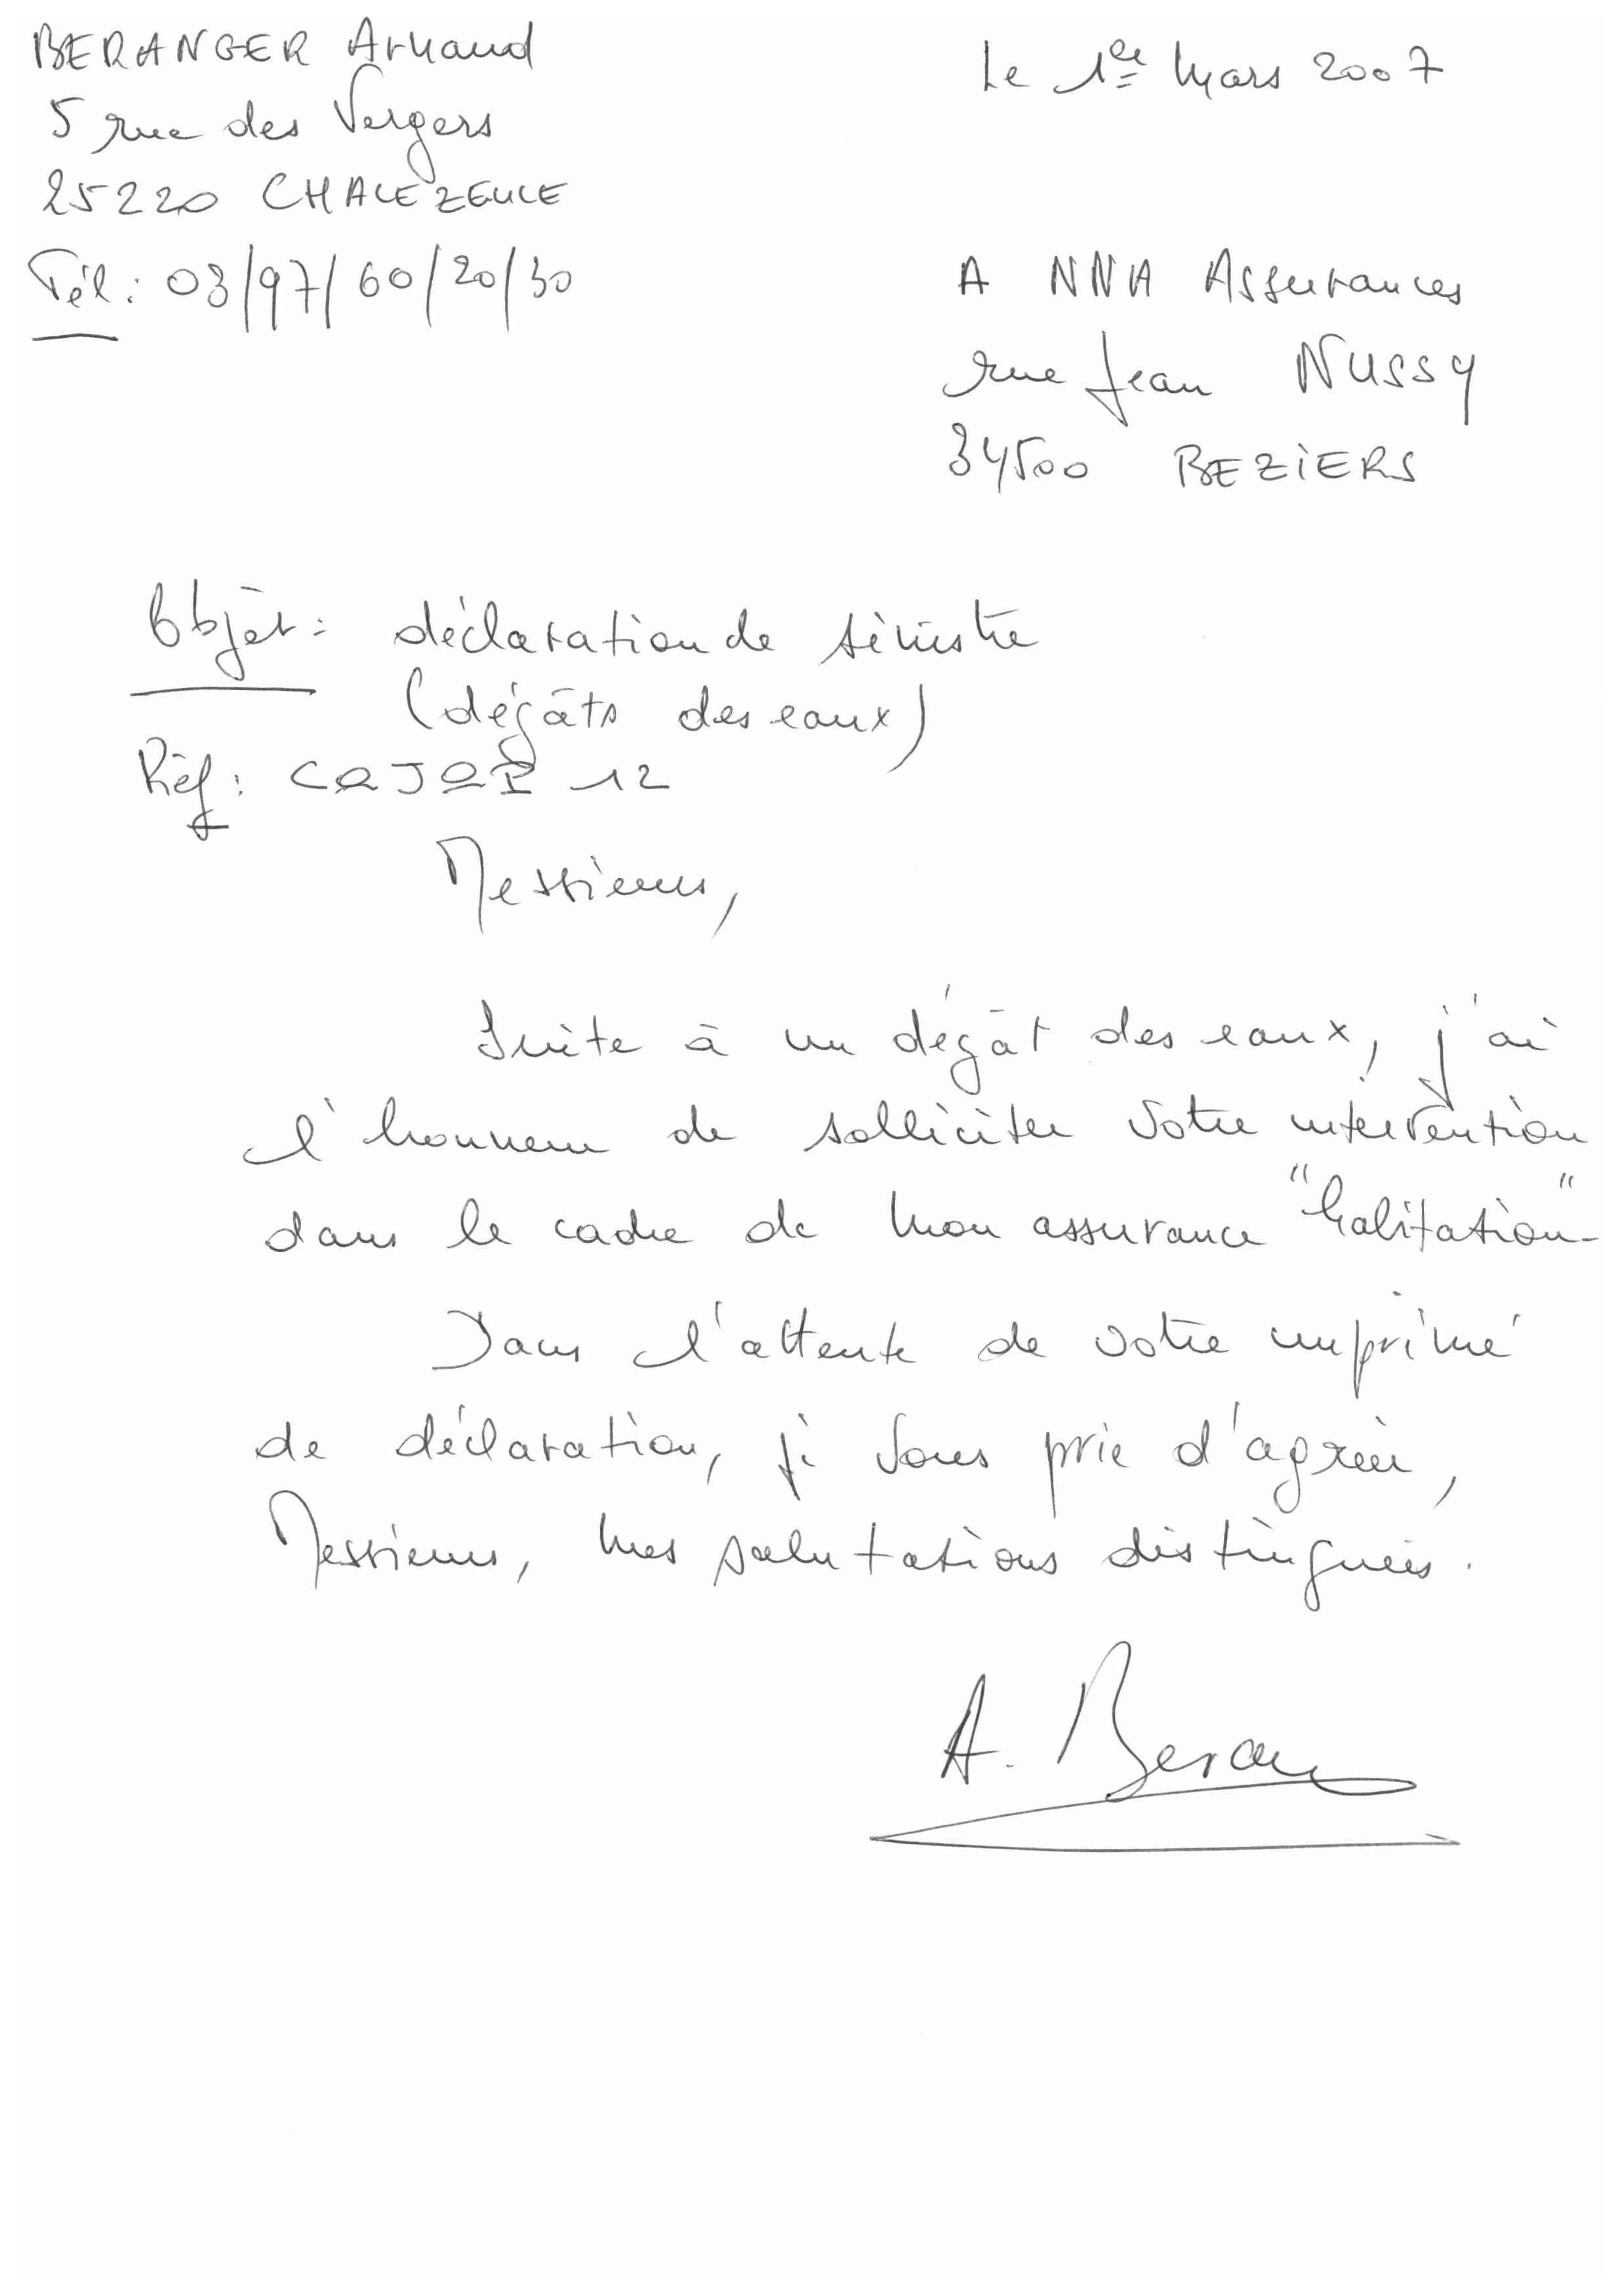 BERANGER Arnaud
5 rue des Vergers
25220 CHALEZEULE
Tél : 03/97/60/20/30
Le 1er Mars 2007
A NNA Assurances
rue Jean NUSSY
34500 BEZIERS
Objet : déclaration de sinistre
(dégâts des eaux)
Réf : 12
Messieurs,
Suite à un dégât des eaux, j'ai
l'honneur de solliciter votre intervention
dans le cadre de mon assurance "habitation".
Dans l'attente de votre imprimé
de déclaration, je vous prie d'agréer,
Messieurs, mes salutations distinguées.
A. Beran